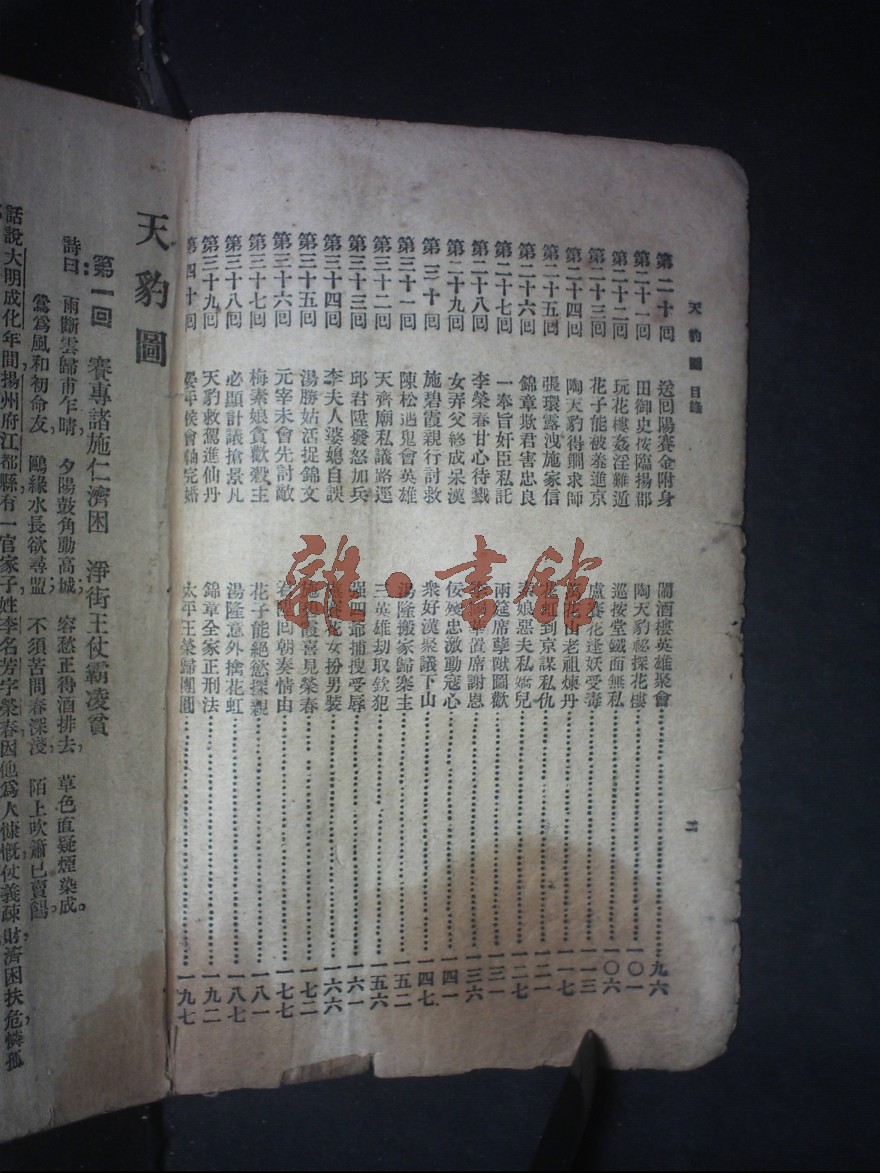 天豹圖 目錄
第二十回 送回陽賽金附身 鬧酒樓英雄聚會 九六
第二十一回 田御史按臨揚郡 陶天豹祕探花樓 一〇一
第二十二回 玩花樓姦淫難逭 巡按堂鐵面無私 一〇六
第二十三回 花子能被叅進京 盧賽花逢妖受毒 一一三
第二十四回 陶天豹得鐲求師 花山老祖煉丹 一一七
第二十五回 張環露洩施家信 花虹到京謀私仇 一二一
第二十六回 錦章欺君害忠良 娘惡夫私嬌兒 一二七
第二十七回 一奉旨奸臣私託 兩筵席孽獄圖歡 一三一
第二十八回 李榮春甘心待戮 置席謝恩 一三六
第二十九回 女弄父終成呆漢 佞殘忠激動寇心 一四一
第三十回 施碧霞親行討救 衆好漢聚議下山 一四七
第三十一回 陳松遇鬼會英雄 湯隆搬家歸寨主 一五二
第三十二回 天齊廟私議路逕 三英雄劫取欽犯 一五六
第三十三回 邱君陞發怒加兵 四爺捕搜受辱 一六一
第三十四回 李夫人婆媳自誤 花女扮男裝 一六六
第三十五回 湯勝姑活捉錦文 霞喜見榮春 一七二
第三十六回 元宰未會先討敵 君陞回朝奏情由 一七七
第三十七回 梅素娘貪歡殺主 花子能絕慾探親 一八一
第三十八回 必顯計議搶景凡 湯隆意外擒花虹 一八七
第三十九回 天豹救駕進仙丹 錦章全家正刑法 一九二
第四十回 晏平侯會勦完婚 太平王榮歸團圓 一九七
二
天豹圖
第一回 賽專諸施仁濟困 淨街王仗霸凌貧
詩曰：雨斷雲歸甫乍晴 夕陽鼓角動高城；容愁正得酒排去，草色直疑煙染成。
鶯爲風和初命友，鷗緣水長欲尋盟；不須苦問春深淺，陌上吹簫已賣餳。
話說大明成化年間，揚州府江都縣有一官家子姓李名芳字榮春，因他爲人慷慨，仗義疎財，濟困扶危，憐孤
雜·書館